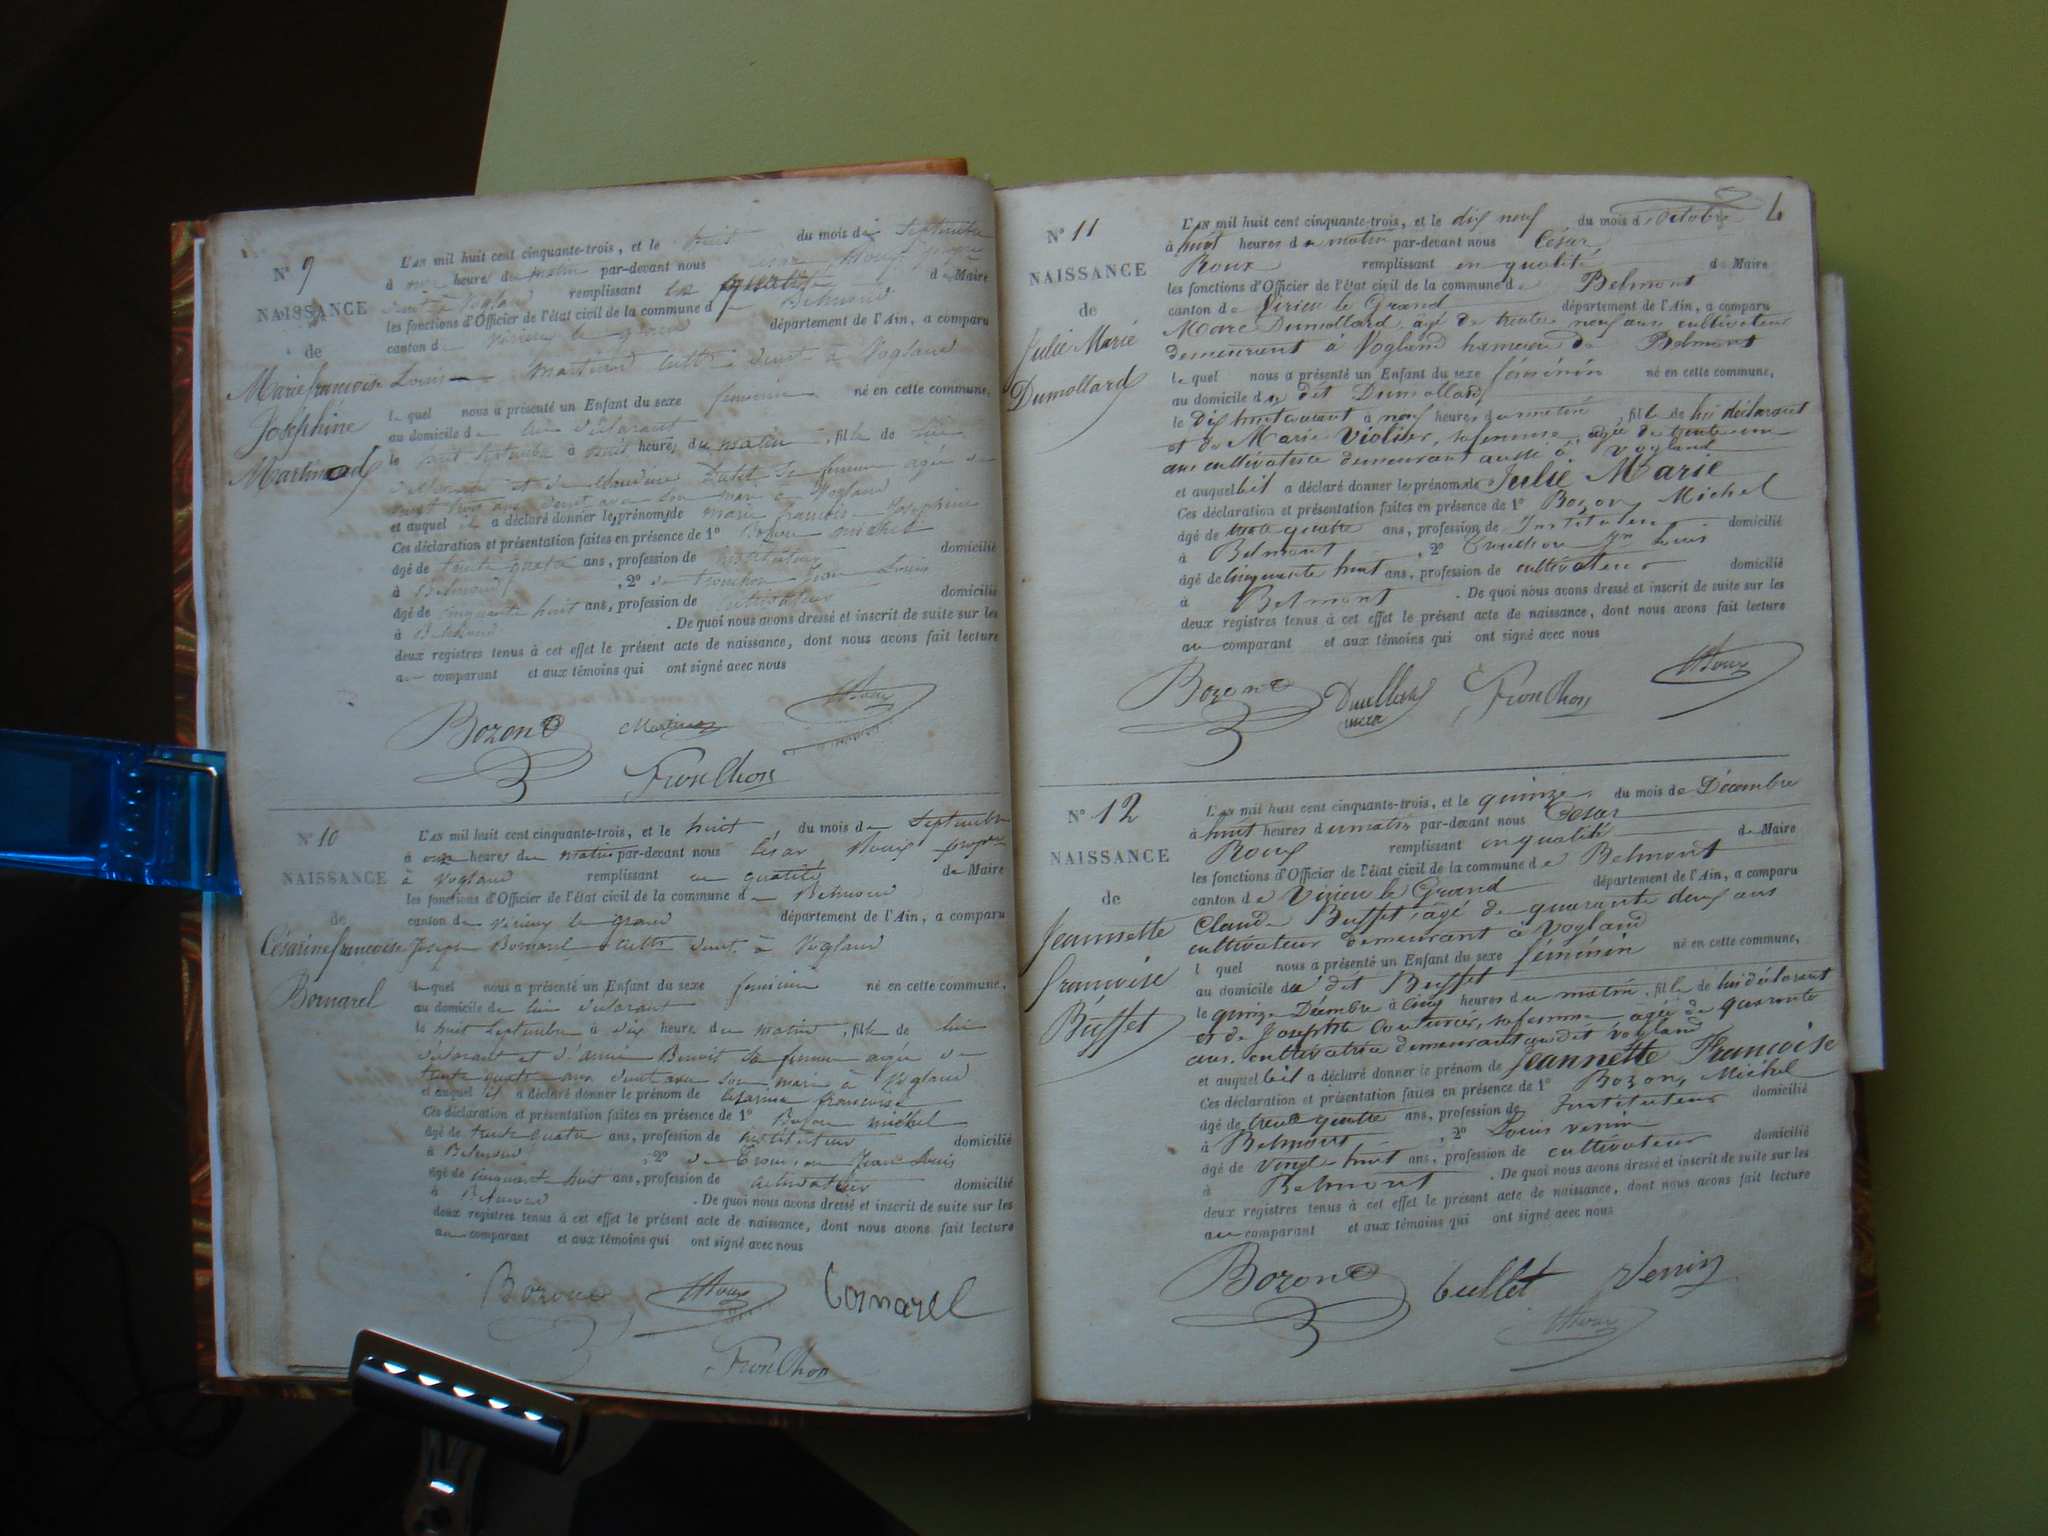 N° 9
NAISSANCE
de
Marie françoise
Joséphine
Martinod
L'AN mil huit cent cinquante-trois, et le huit du mois de Septembre
à heure du matin par-devant nous
à Vogland remplissant en qualité de Maire
les fonctions d'Officier de l'état civil de la commune de Belmont
canton de virieu le grand département de l'Ain, a comparu
Louis Martinod cultr demt à Vogland
le quel nous a présenté un Enfant du sexe féminin né en cette commune,
au domicile de lui déclarant
le huit Septembre à heures du matin, fille de lui
déclarant et de Claudine sa femme agée de
vingt trois ans demt avec son mari à Vogland
et auquel il a déclaré donner les prénoms de marie françoise Joséphine
Ces déclaration et présentation faites en présence de 1° Bozon michel
âgé de trente quatre ans, profession de instituteur domicilié
à Belmont, 2° de tronchon Jean Louis
âgé de cinquante huit ans, profession de cultivateur domicilié
à Belmont. De quoi nous avons dressé et inscrit de suite sur les
deux registres tenus à cet effet le présent acte de naissance, dont nous avons fait lecture
au comparant et aux témoins qui ont signé avec nous
Bozon Martinod Roux
Tronchon
N° 10
NAISSANCE
de
Césarine françoise
Bornarel
L'AN mil huit cent cinquante-trois, et le huit du mois de Septembre
à onze heures du matin par-devant nous César Roux propre
à Vogland remplissant en qualité de Maire
les fonctions d'Officier de l'état civil de la commune de Belmont
canton de virieu le grand département de l'Ain, a comparu
Joseph Bornarel cultr demt à Vogland
le quel nous a présenté un Enfant du sexe féminin né en cette commune,
au domicile de lui déclarant
le huit Septembre à dix heures du matin, fille de lui
déclarant et d'annie Benoit sa femme agée de
trente quatre ans demt avec son mari à Vogland
et auquel il a déclaré donner le prénom de Césarine françoise
Ces déclaration et présentation faites en présence de 1° Bozon michel
âgé de trente quatre ans, profession de instituteur domicilié
à Belmont, 2° de Jean Louis
âgé de cinquante huit ans, profession de cultivateur domicilié
à Belmont. De quoi nous avons dressé et inscrit de suite sur les
deux registres tenus à cet effet le présent acte de naissance, dont nous avons fait lecture
au comparant et aux témoins qui ont signé avec nous
Bozon Roux Bornarel
Tronchon
4
N° 11
NAISSANCE
de
Julie Marie
Dumollard
L'AN mil huit cent cinquante-trois, et le dix neuf du mois d'Octobre
à huit heures du matin par-devant nous César
Roux remplissant en qualité de Maire
les fonctions d'Officier de l'état civil de la commune de Belmont
canton de Virieu le Grand département de l'Ain, a comparu
Marc Dumollard, âgé de trente neuf ans, cultivateur
demeurant à Vogland hameau de Belmont
le quel nous a présenté un Enfant du sexe féminin né en cette commune,
au domicile du dit Dumollard
le dix huit courant à neuf heures du matin, fille de lui déclarant
et de Marie Violiter, sa femme, agée de trente un
ans cultivatrice demeurant aussi à Vogland
et auquel il a déclaré donner les prénoms de Julie Marie
Ces déclaration et présentation faites en présence de 1° Bozon, Michel
âgé de trente quatre ans, profession de Instituteur domicilié
à Belmont, 2° Tronchon Jn Louis
âgé de cinquante huit ans, profession de cultivateur domicilié
à Belmont. De quoi nous avons dressé et inscrit de suite sur les
deux registres tenus à cet effet le présent acte de naissance, dont nous avons fait lecture
au comparant et aux témoins qui ont signé avec nous
Bozon Dumollard marc Tronchon Roux
N° 12
NAISSANCE
de
Jeannette
françoise
Buffet
L'AN mil huit cent cinquante-trois, et le quinze du mois de Décembre
à huit heures du matin par-devant nous César
Roux remplissant en qualité de Maire
les fonctions d'Officier de l'état civil de la commune de Belmont
canton de Virieu le Grand département de l'Ain, a comparu
Claude Buffet, âgé de quarante deux ans
cultivateur demeurant à Vogland
l quel nous a présenté un Enfant du sexe féminin né en cette commune,
au domicile du dit Buffet
le quinze Décembre à cinq heures du matin, fille de lui déclarant
et de Josephte Couturier, sa femme agée de quarante
ans, cultivatrice demeurant au dit Vogland
et auquel il a déclaré donner le prénom de Jeannette Françoise
Ces déclaration et présentation faites en présence de 1° Bozon, Michel
âgé de trente quatre ans, profession de Instituteur domicilié
à Belmont, 2° Louis venin
âgé de vingt huit ans, profession de cultivateur domicilié
à Belmont. De quoi nous avons dressé et inscrit de suite sur les
deux registres tenus à cet effet le présent acte de naissance, dont nous avons fait lecture
au comparant et aux témoins qui ont signé avec nous
Bozon buffet Venin
Roux